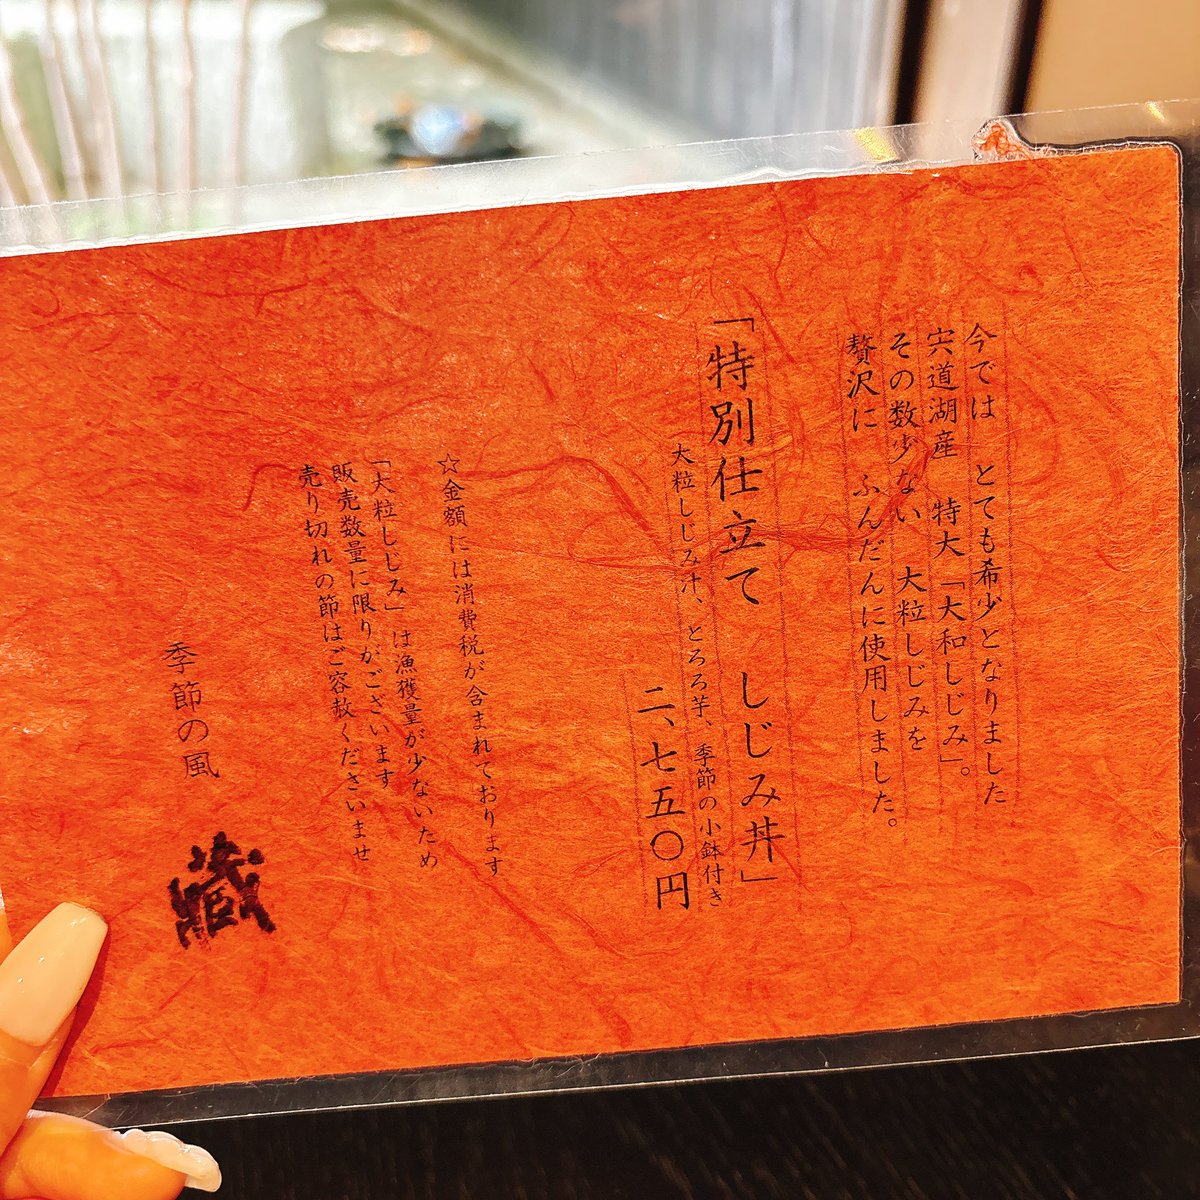 今では　とても希少となりました
宍道湖産　特大「大和しじみ」。
その数少ない　大粒しじみを
贅沢に　ふんだんに使用しました。
「特別仕立て　しじみ丼」
大粒しじみ汁、とろろ芋、季節の小鉢付き
二、七五〇円
☆金額には消費税が含まれております
「大粒しじみ」は漁獲量が少ないため
販売数量に限りがございます
売り切れの節はご容赦くださいませ
季節の風
藏